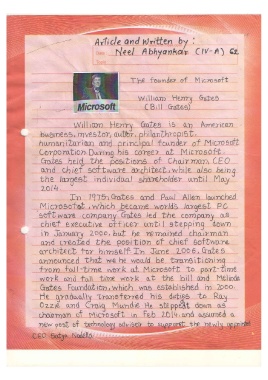 Article and Written by :
Neel Abhyankar (IV-A) 62
The founder of Microsoft
William Henry Gates
(Bill Gates)
Microsoft
William Henry Gates is an American
business, investor, author, philanthropist.
humanitarian and principal founder of Microsoft
Corporation During his career at Microsoft
Gates held the positions of Chairman, CEO
and chief software architect, while also being
the largest individual shareholder until May
2014.
In 1975, Gates and Paul Allen launched
Microsoft, which became worlds largest PC
software company. Gates led the company as
chief executive officer until stepping down
in January 2000, but he remained chairman
and created the position of chief software
architect for himself. In June 2006, Gates
announced that we he would be transitioning
from full-time work at Microsoft to part-time
work and full time work at the bill and Melinda
Gates Foundation, which was established in 2000.
He gradually transferred his duties to Ray
Ozzie and Craig Mundie He stepped down as
chairman of Microsoft in Feb 2014 and assumed a
new post of technology adviser to support the newly appointed
CEO Satya Nadella